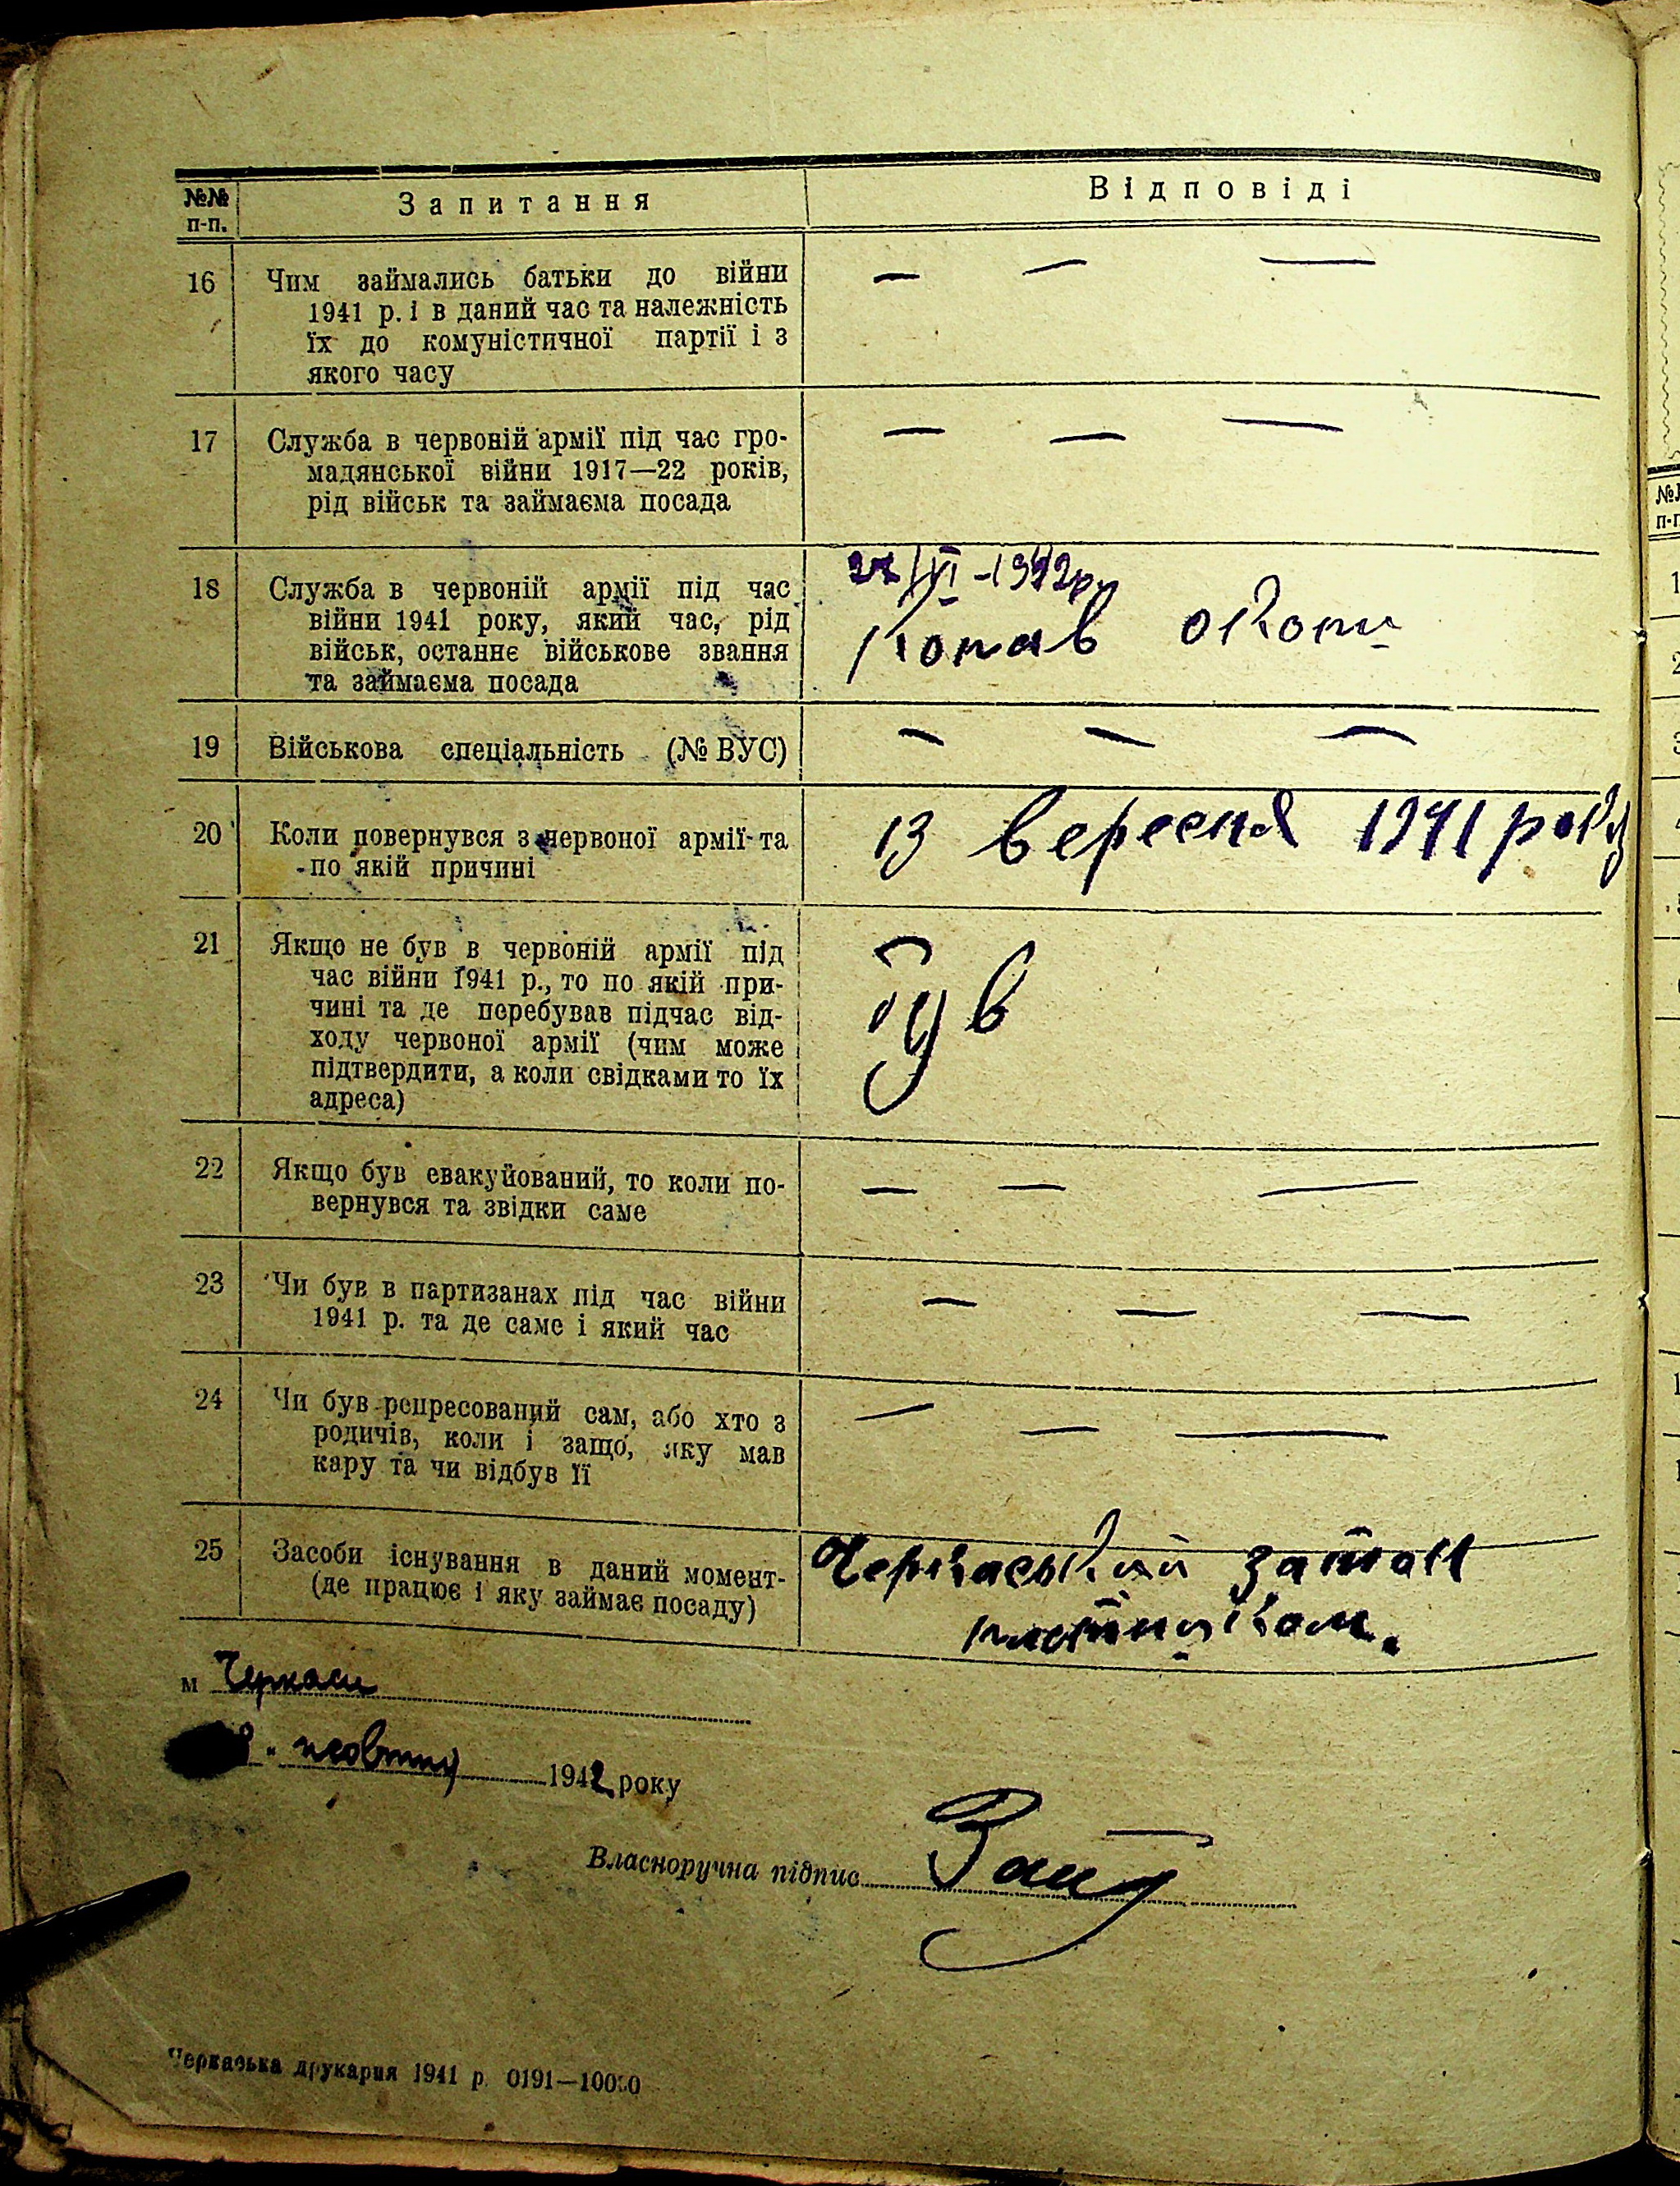 №№ п-п.
Запитання
Відповіді
16
Чим займались батьки до війни
1941 р. і в даний час та належність
їх до комуністичної партії і з
якого часу
— — —
17
Служба в червоній армії під час гро-
мадянської війни 1917—22 років,
рід військ та займаєма посада
— — —
18
Служба в червоній армії під час
війни 1941 року, який час, рід
військ, останнє військове звання
та займаєма посада
Копав окопи
19
Військова спеціальність (№ ВУС)
— — —
20
Коли повернувся з червоної армії та
по якій причині
13 вересня 1941 року
21
Якщо не був в червоній армії під
час війни 1941 р., то по якій при-
чині та де перебував підчас від-
ходу червоної армії (чим може
підтвердити, а коли свідками то їх
адреса)
22
Якщо був евакуйований, то коли по-
вернувся та звідки саме
— — —
23
Чи був в партизанах під час війни
1941 р. та де саме і який час
— — —
24
Чи був репресований сам, або хто з
родичів, коли і защо, яку мав
кару та чи відбув її
— — —
25
Засоби існування в даний момент-
(де працює і яку займає посаду)
Черкаський затон
плотником.
м Черкаси
жовтня 1942 року
Власноручна підпис
Черкаська друкарня 1941 р. 0191—10000
№№
п-п